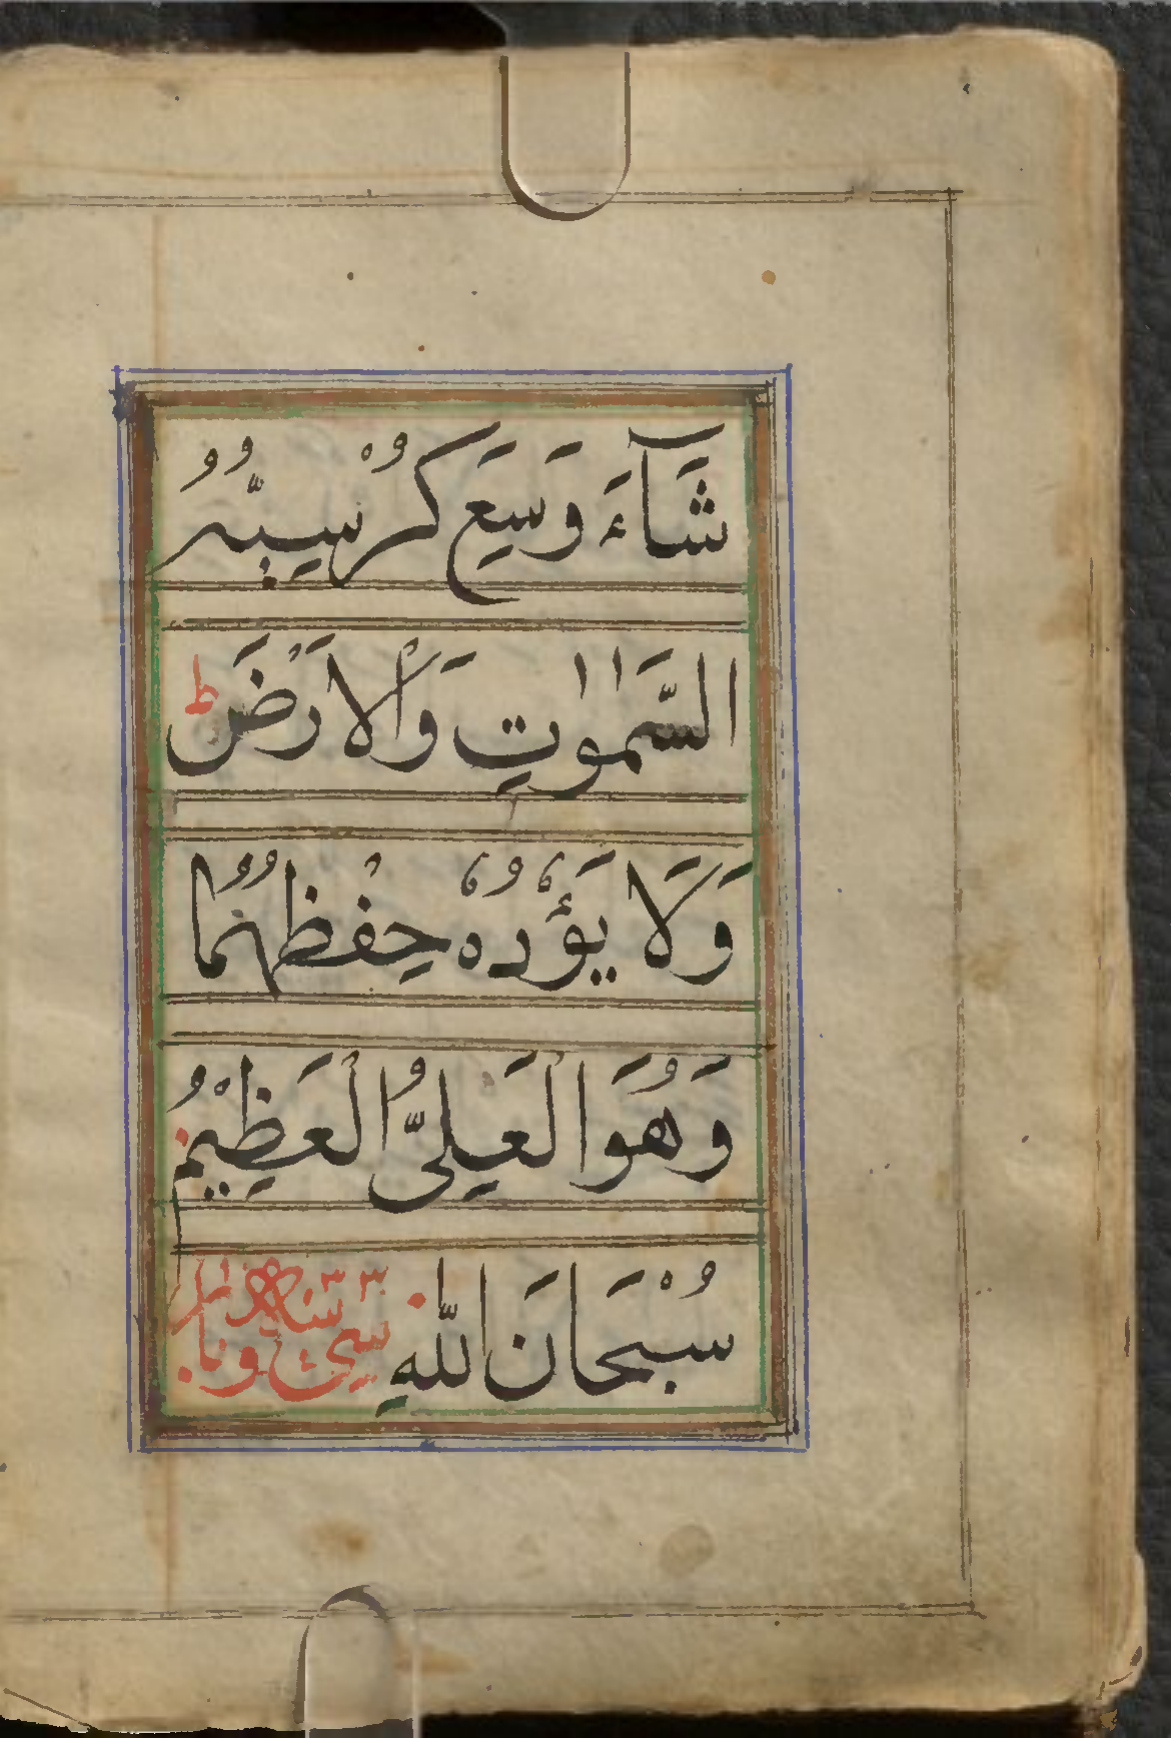 شَآءَ وَسِعَ كُرْسِيُّهُ
السَّمٰوٰتِ وَالْاَرْضَ ط
وَلَا يَؤُدُهٗ حِفْظُهُمَا
وَهُوَ الْعَلِىُّ الْعَظِيْمُ
سُبْحَانَ اللّٰهِ سى